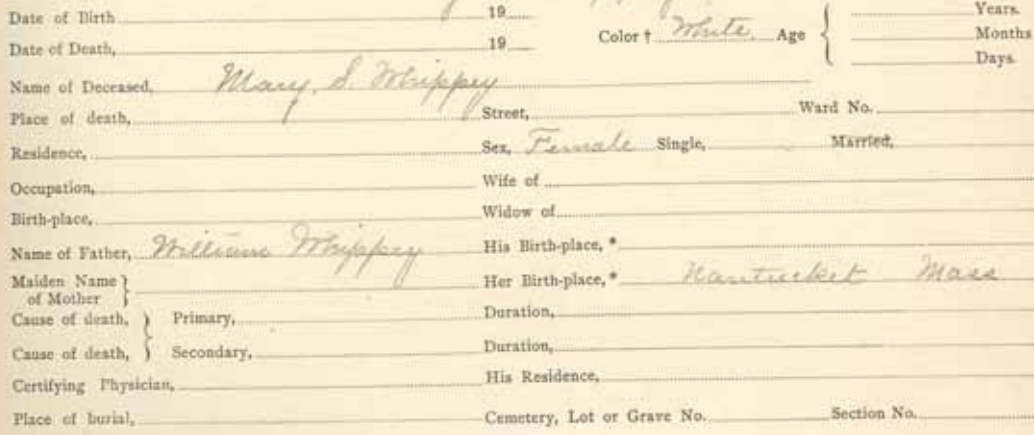 Date of Birth 19 Years.
Date of Death, 19 Color † White. Age { Months
Days.
Name of Deceased, Mary. S. Whippey
Place of death, Street, Ward No.
Residence, Sex, Female Single, Married,
Occupation, Wife of
Birth-place, Widow of
Name of Father, William Whippey His Birth-place, *
Maiden Name of Mother } Her Birth-place, * Nantucket Mass
Cause of death, } Primary, Duration,
Cause of death, } Secondary, Duration,
Certifying Physician, His Residence,
Place of burial, Cemetery, Lot or Grave No. Section No.